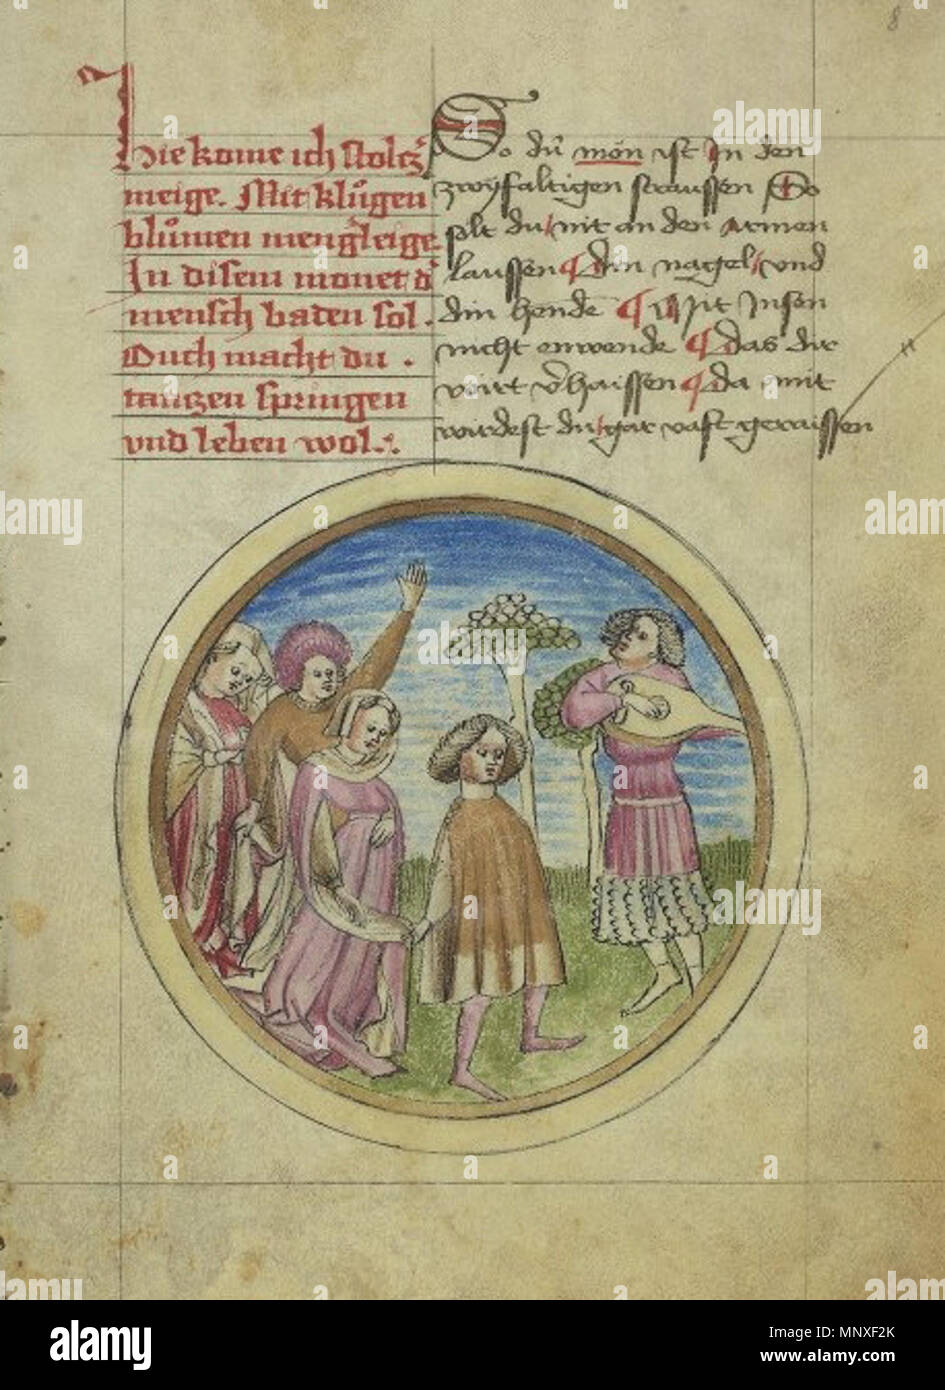 8
Hie kome ich stolcz͛
meige. Mit klůgen
blůmen mengerleige
In disem monet d͛
mensch baden sol.
Ouch macht du .
tantzen springen
vnd leben wol.
So du mon ist In den
zwyfaltigen straussen So
solt du nit an den Armen
laussen ¶ din nagel und
din hende ¶ Mit Insen
nicht enwende ¶ das dir
wirt v͛haissen ¶ da mit
wirdest du gar vast geraissen
alamy
Image ID: MNXF2K
www.alamy.com